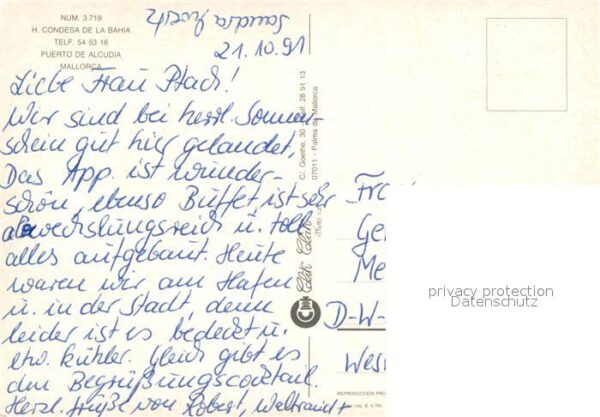 NUM. 3.719
H. CONDESA DE LA BAHIA
TELF. 54 53 16
PUERTO DE ALCUDIA
MALLORCA
Sandra
21.10.91
Liebe Frau Pfach!
Wir sind bei herrl. Sonnen-
schein gut hier gelandet,
Das App. ist wunder-
schön, ebenso Buffet ist sehr
abwechslungsreich u. toll
alles aufgebaut. Heute
waren wir am Hafen
u. in der Stadt, denn
leider ist es bedeckt u.
etw. kühler. Gleich gibt es
den Begrüßungscocktail.
Herzl. Grüße von Robert, Waltraud +
C/. Goethe, 30 Telf. 28 91 13
07011 - Palma de Mallorca
Click Clack
Fr
Ge
Me
D-W-
Wes
REPRODUCCION PRO
privacy protection
Datenschutz